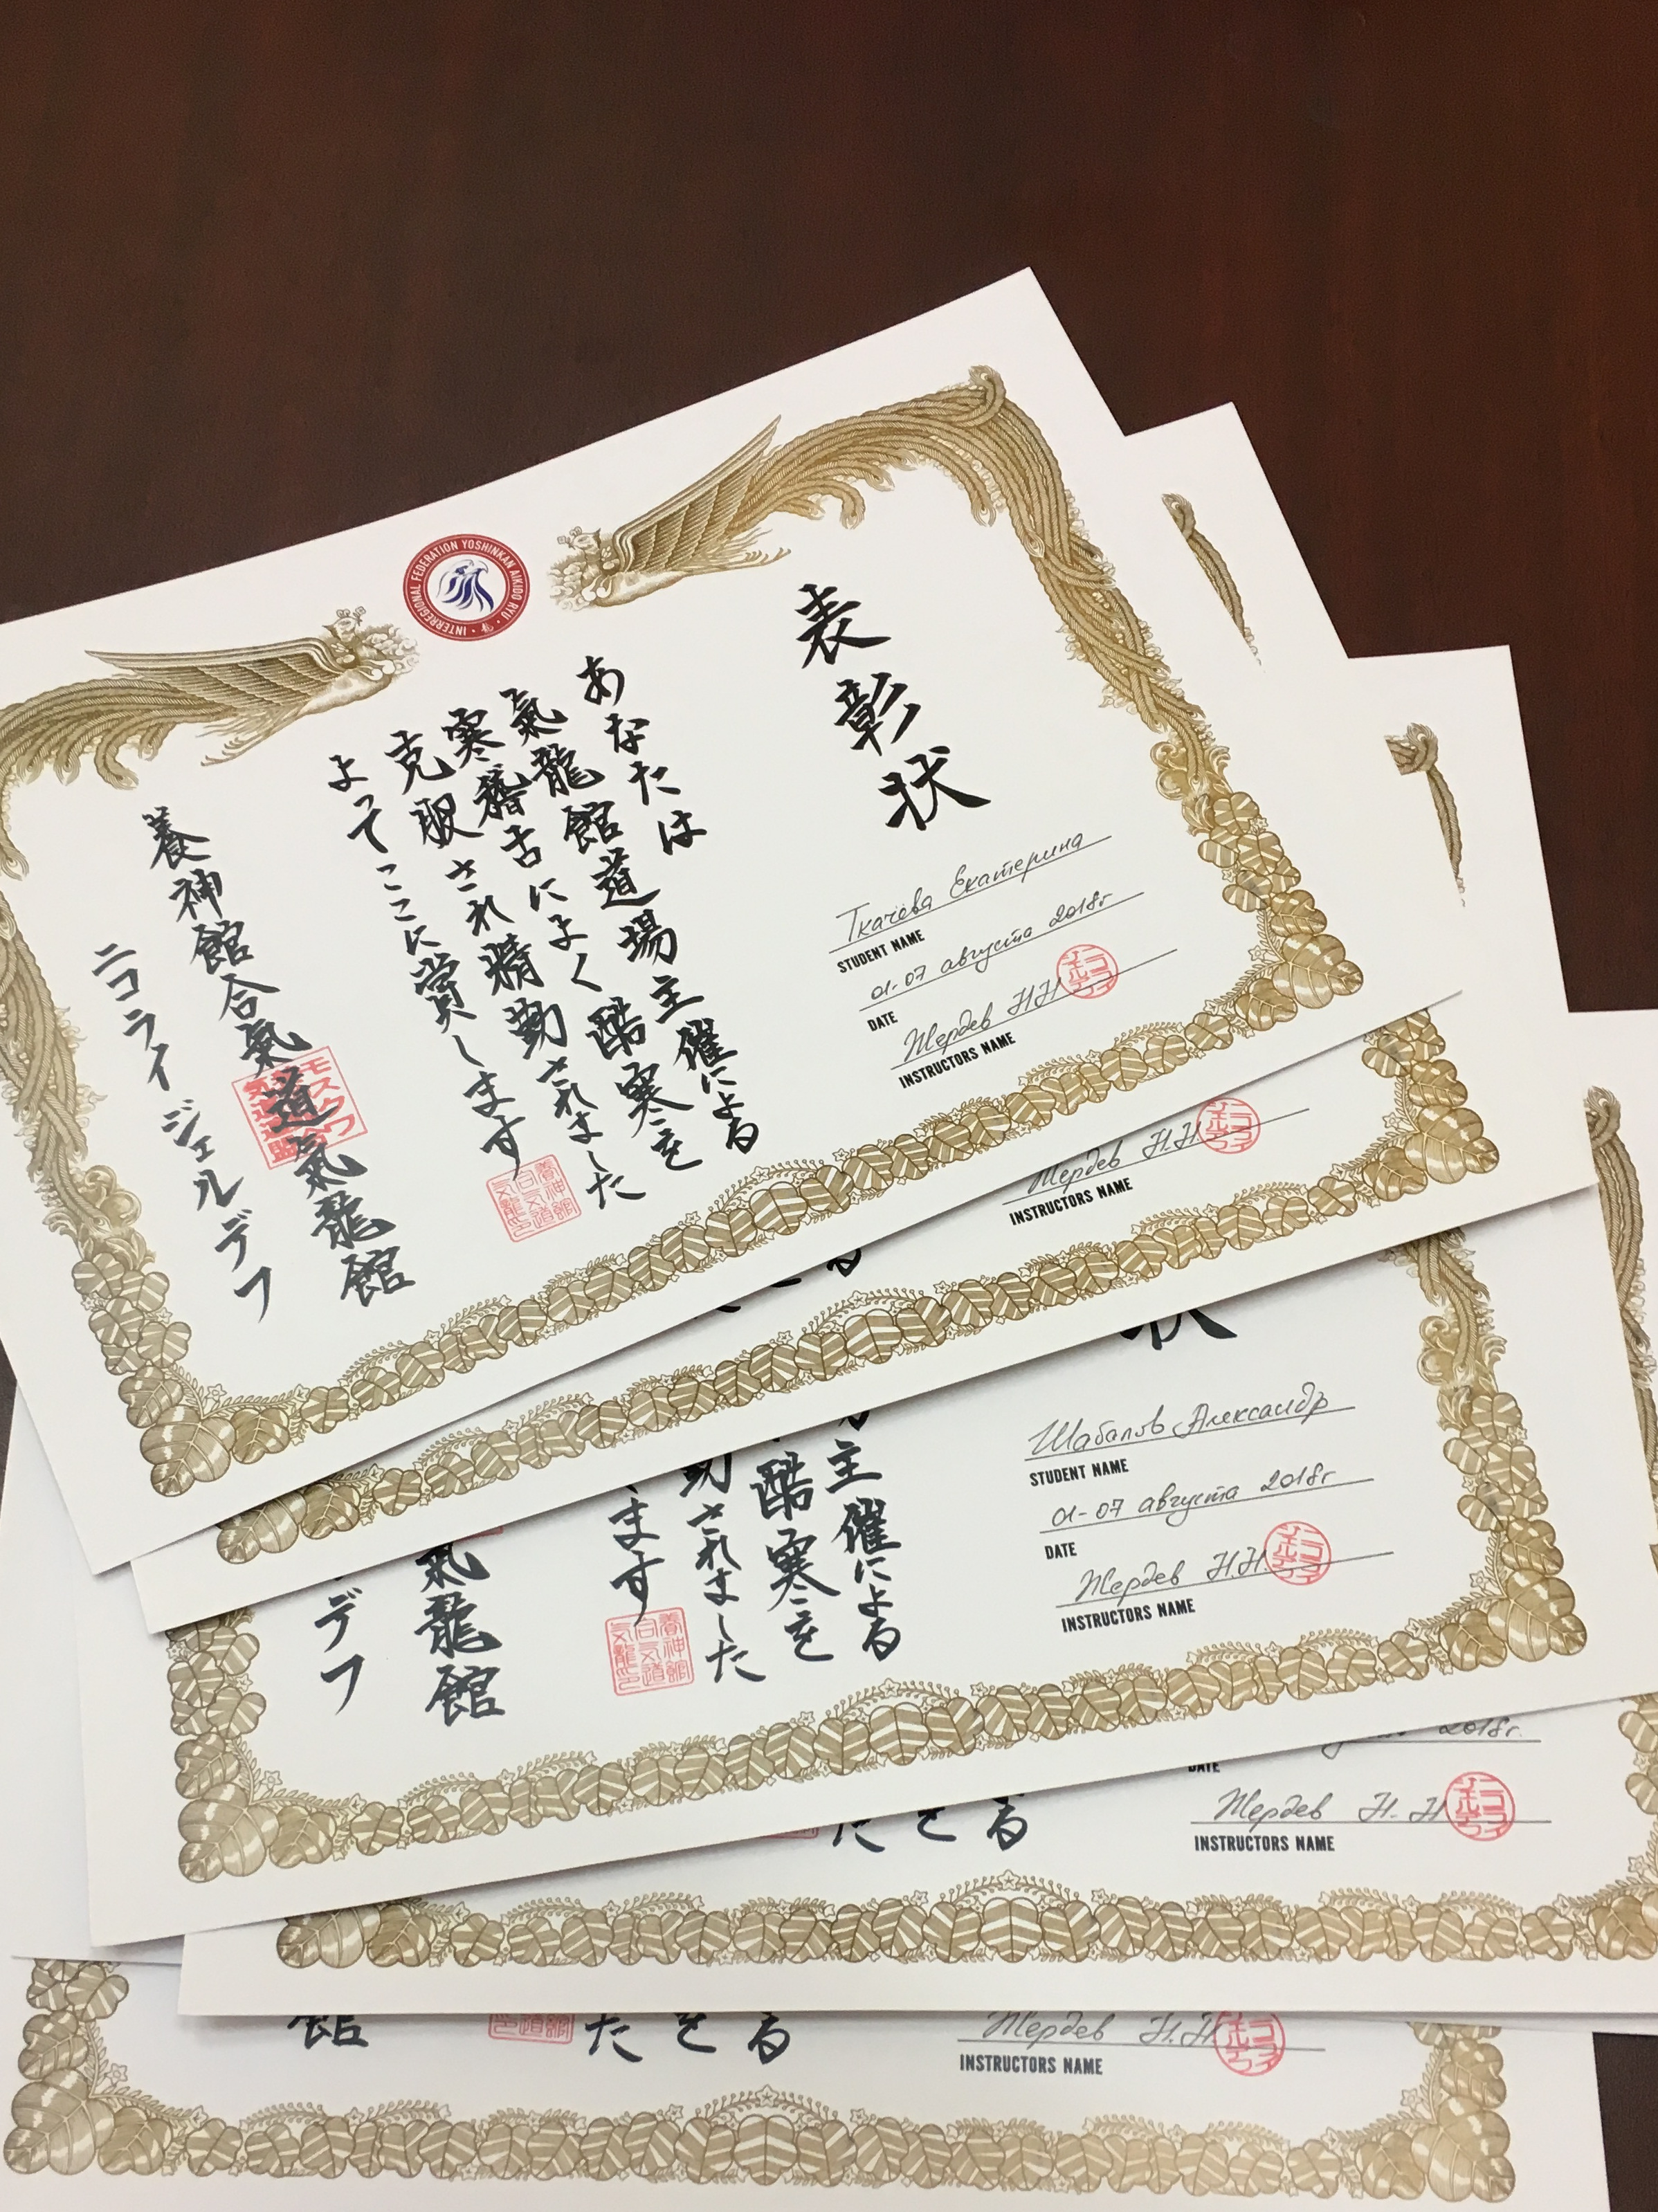 INTERREGIONAL FEDERATION YOSHINKAN AIKIDO RYU · 龍 ·
表彰状
あなたは
氣龍館道場主催による
寒稽古によく酷寒を
克服され精勤されました
よってここに賞します
養神館合氣道氣龍館
ニコライジェルデフ
モスクワ
養神館
合気道
気龍印
Ткачёва Екатерина
STUDENT NAME
01-07 августа 2018г
DATE
Жердев Н.Н
INSTRUCTORS NAME
Жердев Н.Н.
INSTRUCTORS NAME
状
主催による
酷寒を
勤されました
ます
氣龍館
デフ
養神館
合気道
気龍印
Шабалов Александр
STUDENT NAME
01-07 августа 2018г
DATE
Жердев Н.Н.
INSTRUCTORS NAME
る
を
た
2018г.
DATE
Жердев Н.Н
INSTRUCTORS NAME
る
を
た
館
Жердев Н.Н
INSTRUCTORS NAME